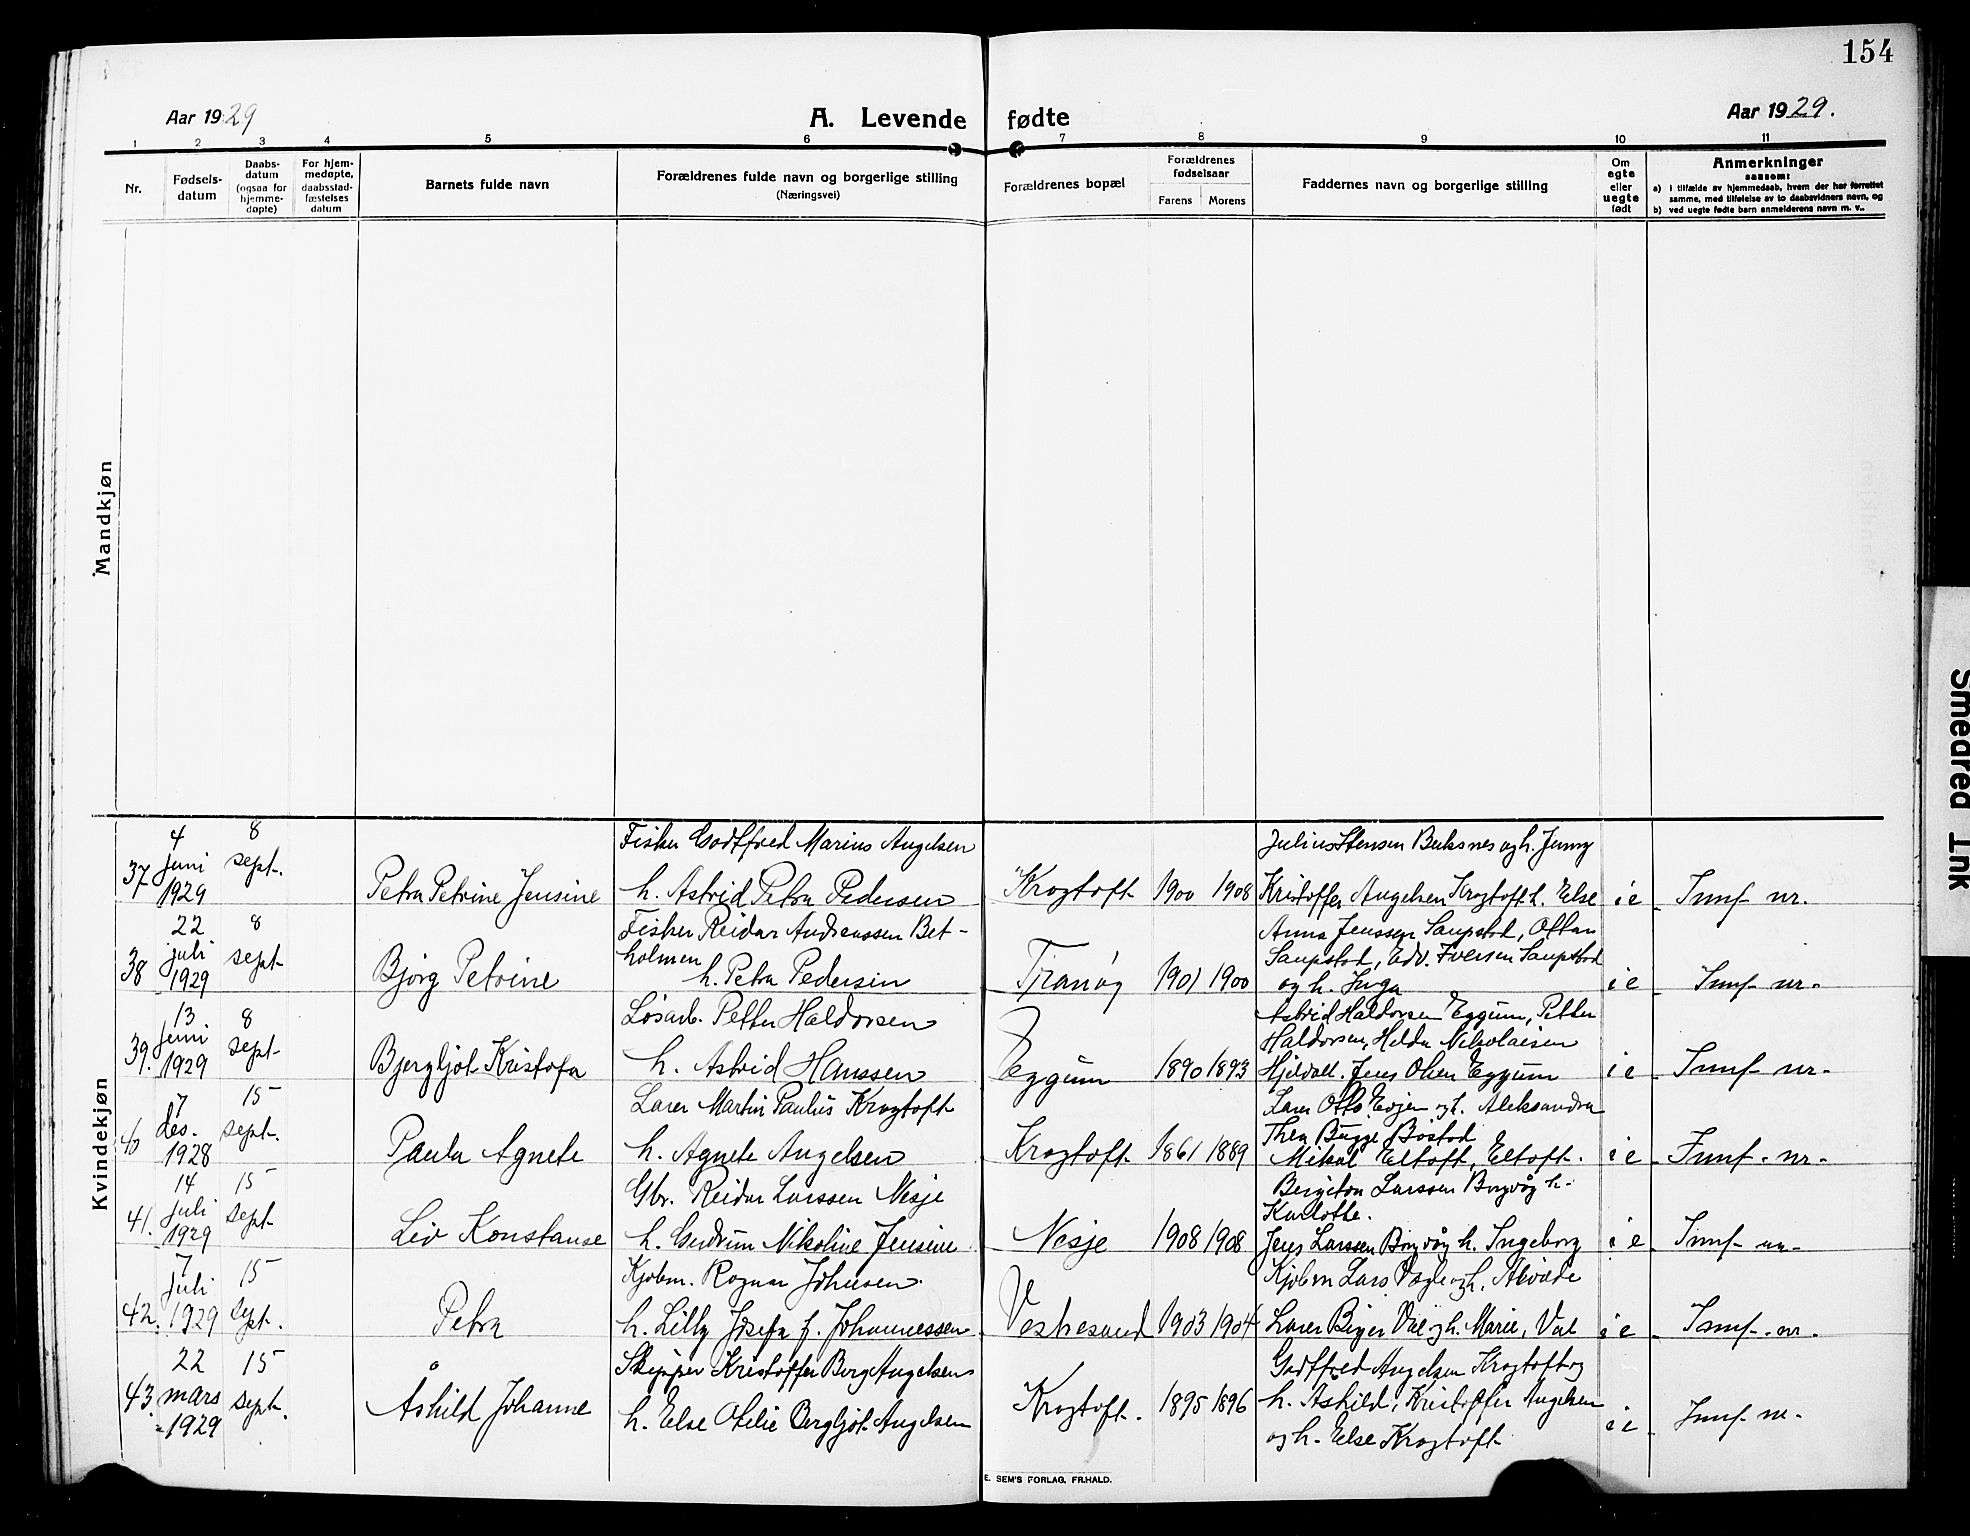 154
Aar 1929
A. Levende fødte
Aar 1929.
1 2 3 4 5 6 7 8 9 10 11
Nr.
Fødsels-
datum
Daabs-
datum
(ogsaa for
hjemme-
døpte)
For hjem-
medøpte,
daabsstad-
fæstelses
datum
Barnets fulde navn
Forældrenes fulde navn og borgerlige stilling
(Næringsvei)
Forældrenes bopæl
Forældrenes
fødselsaar
Farens Morens
Faddernes navn og borgerlige stilling
Om
egte
eller
uegte
født
Anmerkninger
saasom:
a) i tilfælde av hjemmedaab, hvem der har forrettet
samme, med tilføielse av to daabsvidners navn, og
b) ved uegte fødte barn anmelderens navn m. v..
Mandkjøn
Kvindekjøn
37
4
juni
1929
8
sept.
Petra Petrine Jensine
Fisker Godtfred Marius Angelsen
h. Astrid Petra Pedersen
Krogtoft 1900 1908
Julius Stensen Buksnes og h. Jenny
Kristoffer Angelsen Krogtoft h. Else
i e
38
22
juli
1929
8
sept
Bjørg Petrine
Fisker Reidar Andreassen Bet-
holmen
h. Petra Pedersen
Tranøy 1901 1900
Anna Jenssen Saupstad, Ottar
Saupstad, Edv. Iversen Saupstad
og h. Inga
i e
39.
13
juni
1929
8
sept
Bjergljot Kristofa
Løsarb. Petter Haldorsen
h. Astrid Hanssen
Eggum 1890 1893
Astrid Haldorsen Eggum, Petter
Haldorsen, Helda Nikolaisen
Hjeldall. Jens Olsen Eggum
i e
40
7
des.
1928
15
sept.
Paula Agnete
Lærer Martin Paulus Krogtoft
h. Agnete Angelsen
Krogtoft 1861 1889
Lærer Otto Evjen og h. Aleksandra
Thea Bugge Bøstad
Mikal Eltoft, Eltoft.
i e
41.
14
juli
1929
15
sept
Liv Konstanse
Gbr. Reidar Larssen Nesje
h. Gudrun Nikoline Jensine
Nesje 1908 1908
Bergiton Larssen Borgvåg h.
Karlotte.
Jens Larssen Borgvåg h. Ingeborg
i e
42.
7
juli
1929
15
sept.
Petra
Kjøbm. Ragnar Johnsen.
h. Lilly Josefa f. Johannessen
Vestresand 1903 1904
Lærer Birger Val og h. Marie, Val
i e
43.
22
mars
1929
15
sept.
Åshild Johanne
Skipper Kristoffer Berg Angelsen
h. Else Otelie Bergljot Angelsen
Krogtoft. 1895 1896
Godtfred Angelsen Krogtoft og
h. Ashild, Kristoffer Angelsen
og h. Else Krogtoft
i e
E. SEM'S FORLAG, FR.HALD.
Smeared Ink